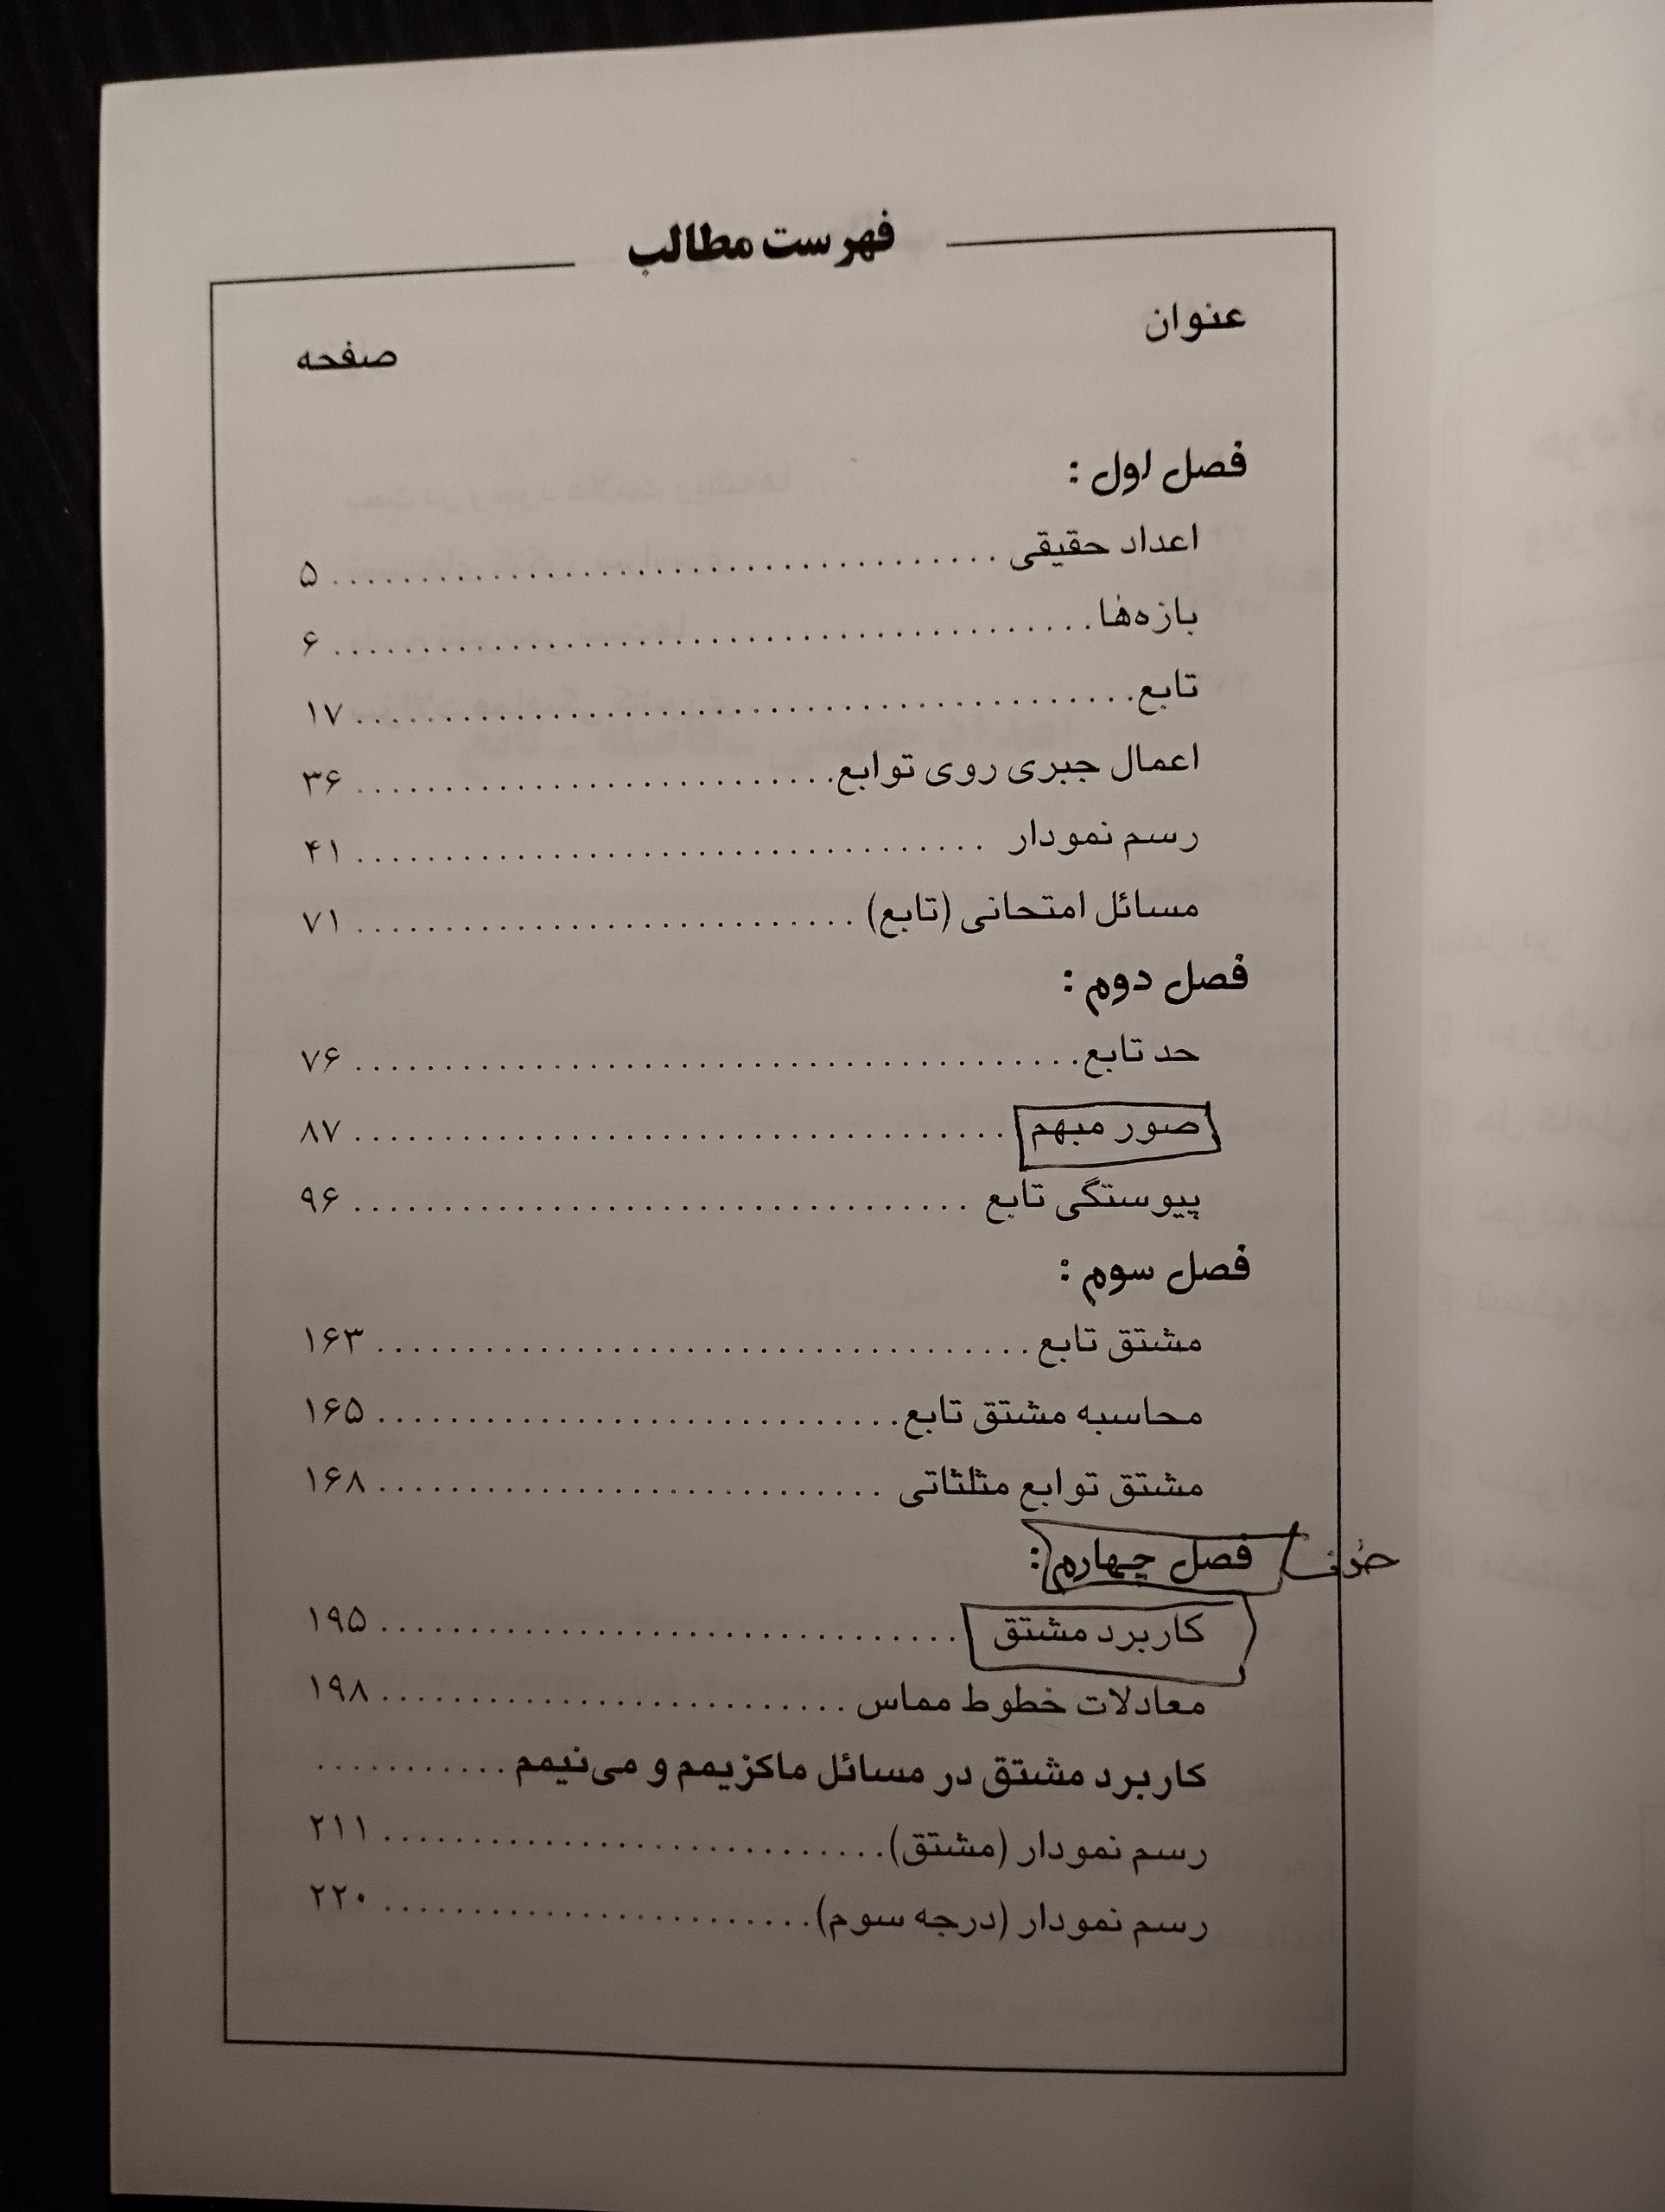 فهرست مطالب
عنوان
صفحه
فصل اول :
اعداد حقیقی ........................................ ۵
بازه‌ها ........................................ ۶
تابع ........................................ ۱۷
اعمال جبری روی توابع ........................................ ۳۶
رسم نمودار ........................................ ۴۱
مسائل امتحانی (تابع) ........................................ ۷۱
فصل دوم :
حد تابع ........................................ ۷۶
صور مبهم ........................................ ۸۷
پیوستگی تابع ........................................ ۹۶
فصل سوم :
مشتق تابع ........................................ ۱۶۳
محاسبه مشتق تابع ........................................ ۱۶۵
مشتق توابع مثلثاتی ........................................ ۱۶۸
حذف فصل چهارم :
کاربرد مشتق ........................................ ۱۹۵
معادلات خطوط مماس ........................................ ۱۹۸
کاربرد مشتق در مسائل ماکزیمم و می‌نیمم ...........
رسم نمودار (مشتق) ........................................ ۲۱۱
رسم نمودار (درجه سوم) ........................................ ۲۲۰